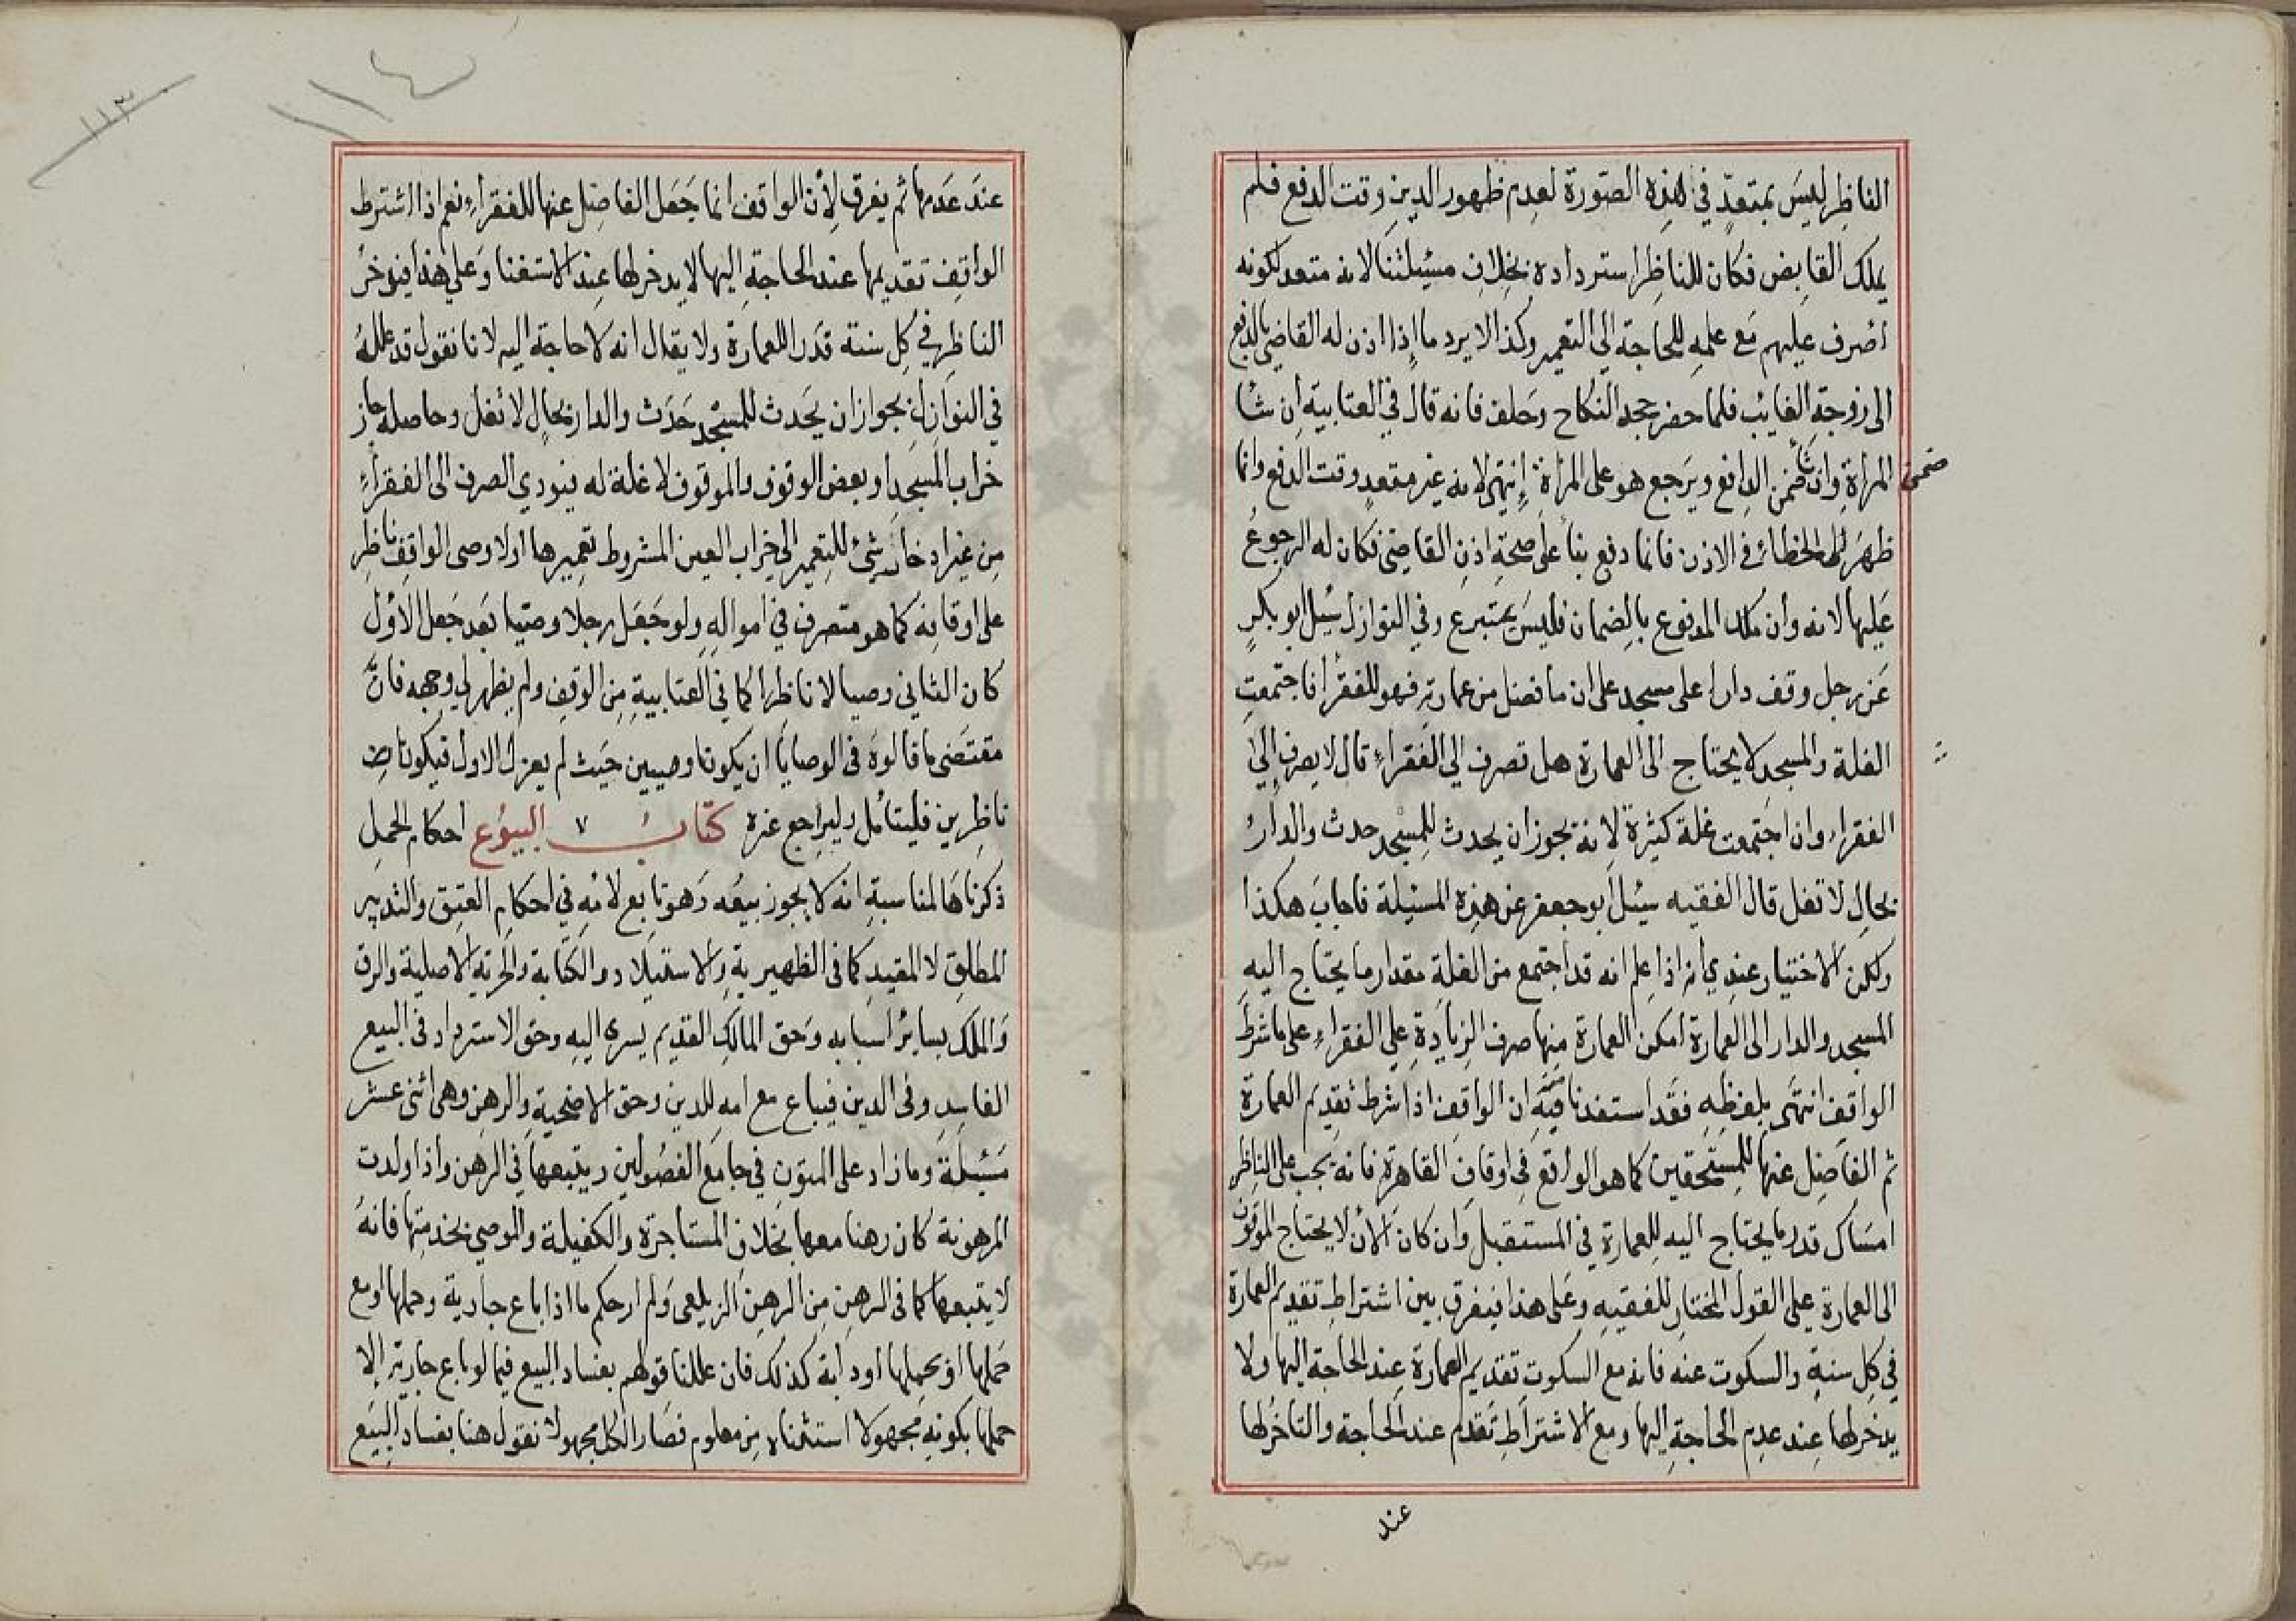 الناظر ليس بمتعدّ في هذه الصّورة لعدم ظهور الدين وقت الدفع فلم
يملك القابض فكان للناظر استرداده بخلاف مسئلتنا لانه متعد لكونه
أصرف عليهم مع علمه للحاجة الى التعمير وكذا لا يرد ما إذا اذن له القاضي بالدفع
الى زوجة الغايب فلما حضر جحد النكاح وحلف فانه قال في العتابية ان شا
ضمن
المرأة وان شأ ضمن الدافع ويرجع هو على المرأة إنتهى لانه غير متعد وقت الدفع وانما
ظهر لها الخطائ في الاذن فانما دفع بنا على صحة اذن القاضي فكان له الرجوع
عليها لانه وأن ملك المدفوع بالضمان فليس بمتبرع وفي النوازل سئل ابو بكر
عن رجل وقف دارا على مسجد على ان ما فضل من عمارته فهو للفقرأ فاجتمعت
الغلة والمسجد لا يحتاج الى العمارة هل تصرف الي الفقراء قال لا يصرف إلي
الفقراء وان اجتمعت غلة كثيرة لانه يجوز ان يحدث للمسجد حدث والدار
بحال لا تغل قال الفقيه سئل أبو جعفر عن هذه المسئلة فاجاب هكذا
ولكن الاختيار عندي انه اذا علم انه قد اجتمع من الغلة مقدار ما يحتاج اليه
المسجد والدار الى العمارة امكن العمارة منها صرف الزيادة علي الفقراء على ما شرط
الواقف انتهى بلفظه فقد استفدنا منه ان الواقف اذا شرط تقديم العمارة
ثم الفاضل عنها للمستحقين كما هو الواقع في اوقاف القاهرة فانه يجب على الناظر
امساك قدر ما يحتاج اليه للعمارة في المستقبل وان كان الأن لا يحتاج الموقوف
الى العمارة علي القول المختار للفقيه وعلى هذا فيفرق بين اشتراط تقديم العمارة
في كل سنة والسكوت عنه فانه مع السكوت تقديم العمارة عند الحاجة اليها ولا
يدخرلها عند عدم الحاجة اليها ومع الاشتراط تقدم عند الحاجة والتاخرلها
عند
١١٤
١١٣
عند عدمها ثم يفرق لأن الواقف انما جعل الفاضل عنها للفقرأء نعم اذا اشترط
الواقف تقديمها عند الحاجة اليها لا يدخرلها عند الاستغنا وعلي هذا فيؤخر
الناظر في كل سنة قدرا للعمارة ولا يقال انه لا حاجة اليه لانا نقول قد علله
في النوازل بجواز ان يحدث للمسجد حدث والدار بحال لا تغل وحاصله جاز
خراب المسجد أو بعض الوقوف والموقوف لا غلة له فيودي الصرف الى الفقرأء
من غير ادخار شئ للتعمير الى خراب العين المشروط تعميرها أولا وصى الواقف ناظر
على اوقافه كما هو متصرف في امواله ولو جعل رجلا وصيا بعد جعل الأول
كان الثاني وصيا لا ناظرا كما في العتابية من الوقف ولم يظهر لي وجهه فانّ
مقتضى ما قالوه فى الوصايا ان يكونا وصيين حيث لم يعزل الاول فيكونا
ناظرين فليتأمل وليراجع غره كتاب ٧ البيوع احكام الحمل
ذكرناها لمناسبة انه لا يجوز بيعه وهو تابع لامه في احكام العتق والتدبير
المطلق لا المقيد كما في الظهيرية والاستيلاد والكتابة والحرية الاصلية والرق
والملك بساير اسبابه وحق المالك القديم يسرى اليه وحق الاسترداد في البيع
الفاسد وفى الدين فيباع مع امه للدين وحق الاضحية والرهن وهى اثنى عشر
مسئلة وما زاد على المتون في جامع الفصولين ويتبعها في الرهن واذا ولدت
المرهونة كان رهنا معها بخلاف المستأجرة والكفيلة والموصي بخدمتها فانه
لا يتبعها كما فى الرهن من الرهن الزيلعى ولم ار حكم ما اذا باع جارية وحملها او مع
حملها او بحملها أو دابة كذلك فان عللنا قولهم بفساد البيع فيما لو باع جارية إلا
حملها بكونه مجهولا استثناه من معلوم فصار الكل مجهولا نقول هنا بفساد البيع